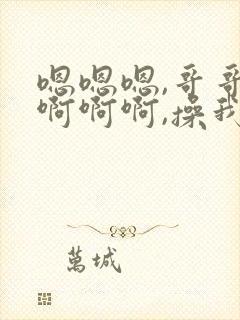 嗯嗯嗯,哥哥
啊啊啊,操我
萬城